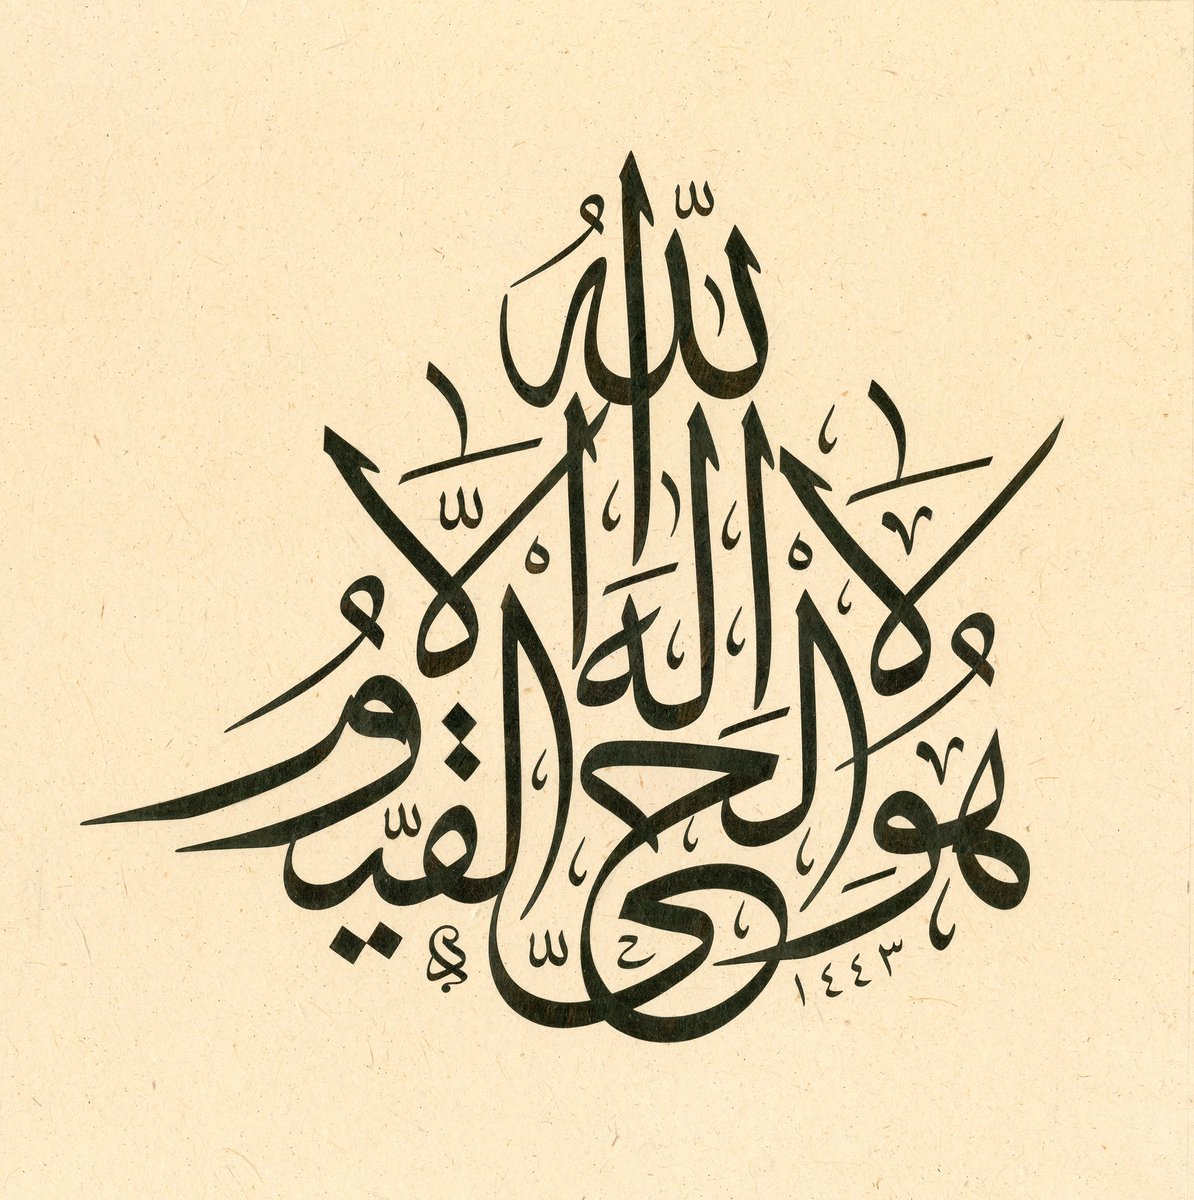 اللّٰهُ لَا إِلٰهَ إِلَّا هُوَ الْحَيُّ الْقَيُّومُ
١٤٤٣